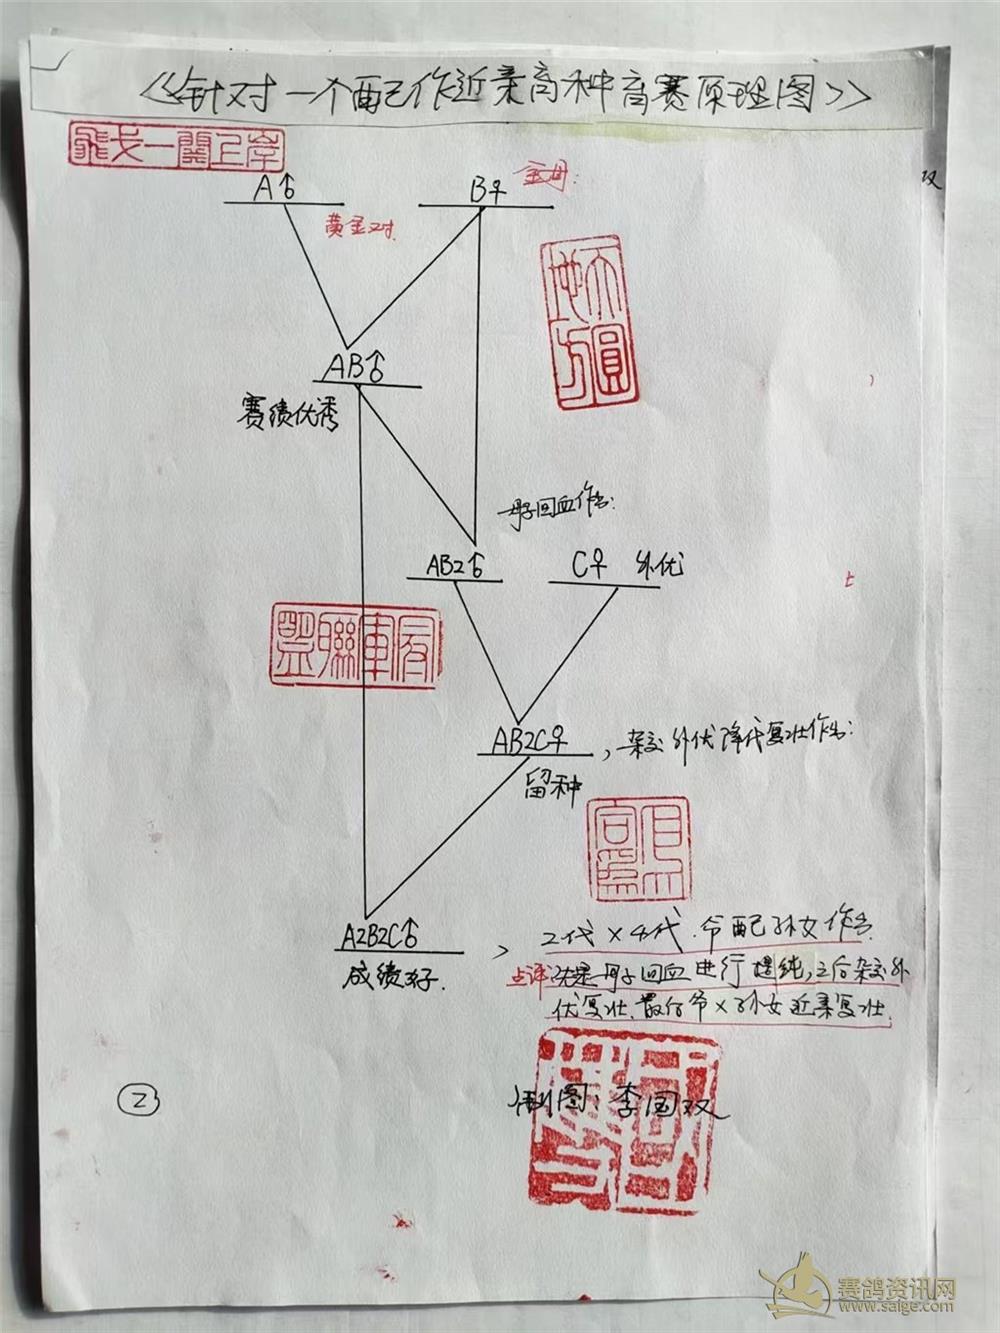 《针对一个配对作近亲育种育赛原理图》
飛戈一關上岸
A♂
B♀
金母:
黄金对
天地方圓
AB♂
赛绩优秀
母子回血作出:
AB2♂
C♀ 外优
盟聯軍
AB2C♀
,杂交外优降代复壮作出:
留种
A2B2C♂
成绩好.
, 2代×4代.爷配孙女作出.
点评:
母子回血进行提纯,之后杂交外
优复壮.最后爷×孙女近亲复壮.
制图:李国双
②
双
赛鸽资讯网
www.saige.com